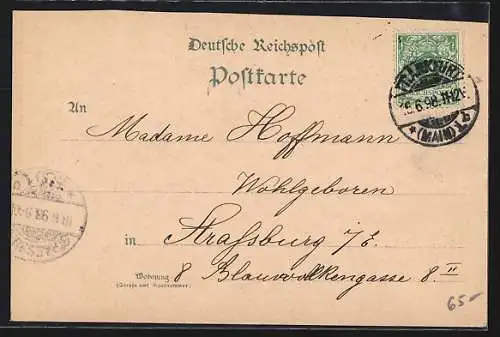 Deutsche Reichspost
Postkarte
FRANKFURT
6.98.11-12
*(MAIN)
An
Madame Hoffmann
Wohlgeboren
in Straßburg i/E
Wohnung
(Straße und Hausnummer)
8 Blauwolkengasse 8 II
65-